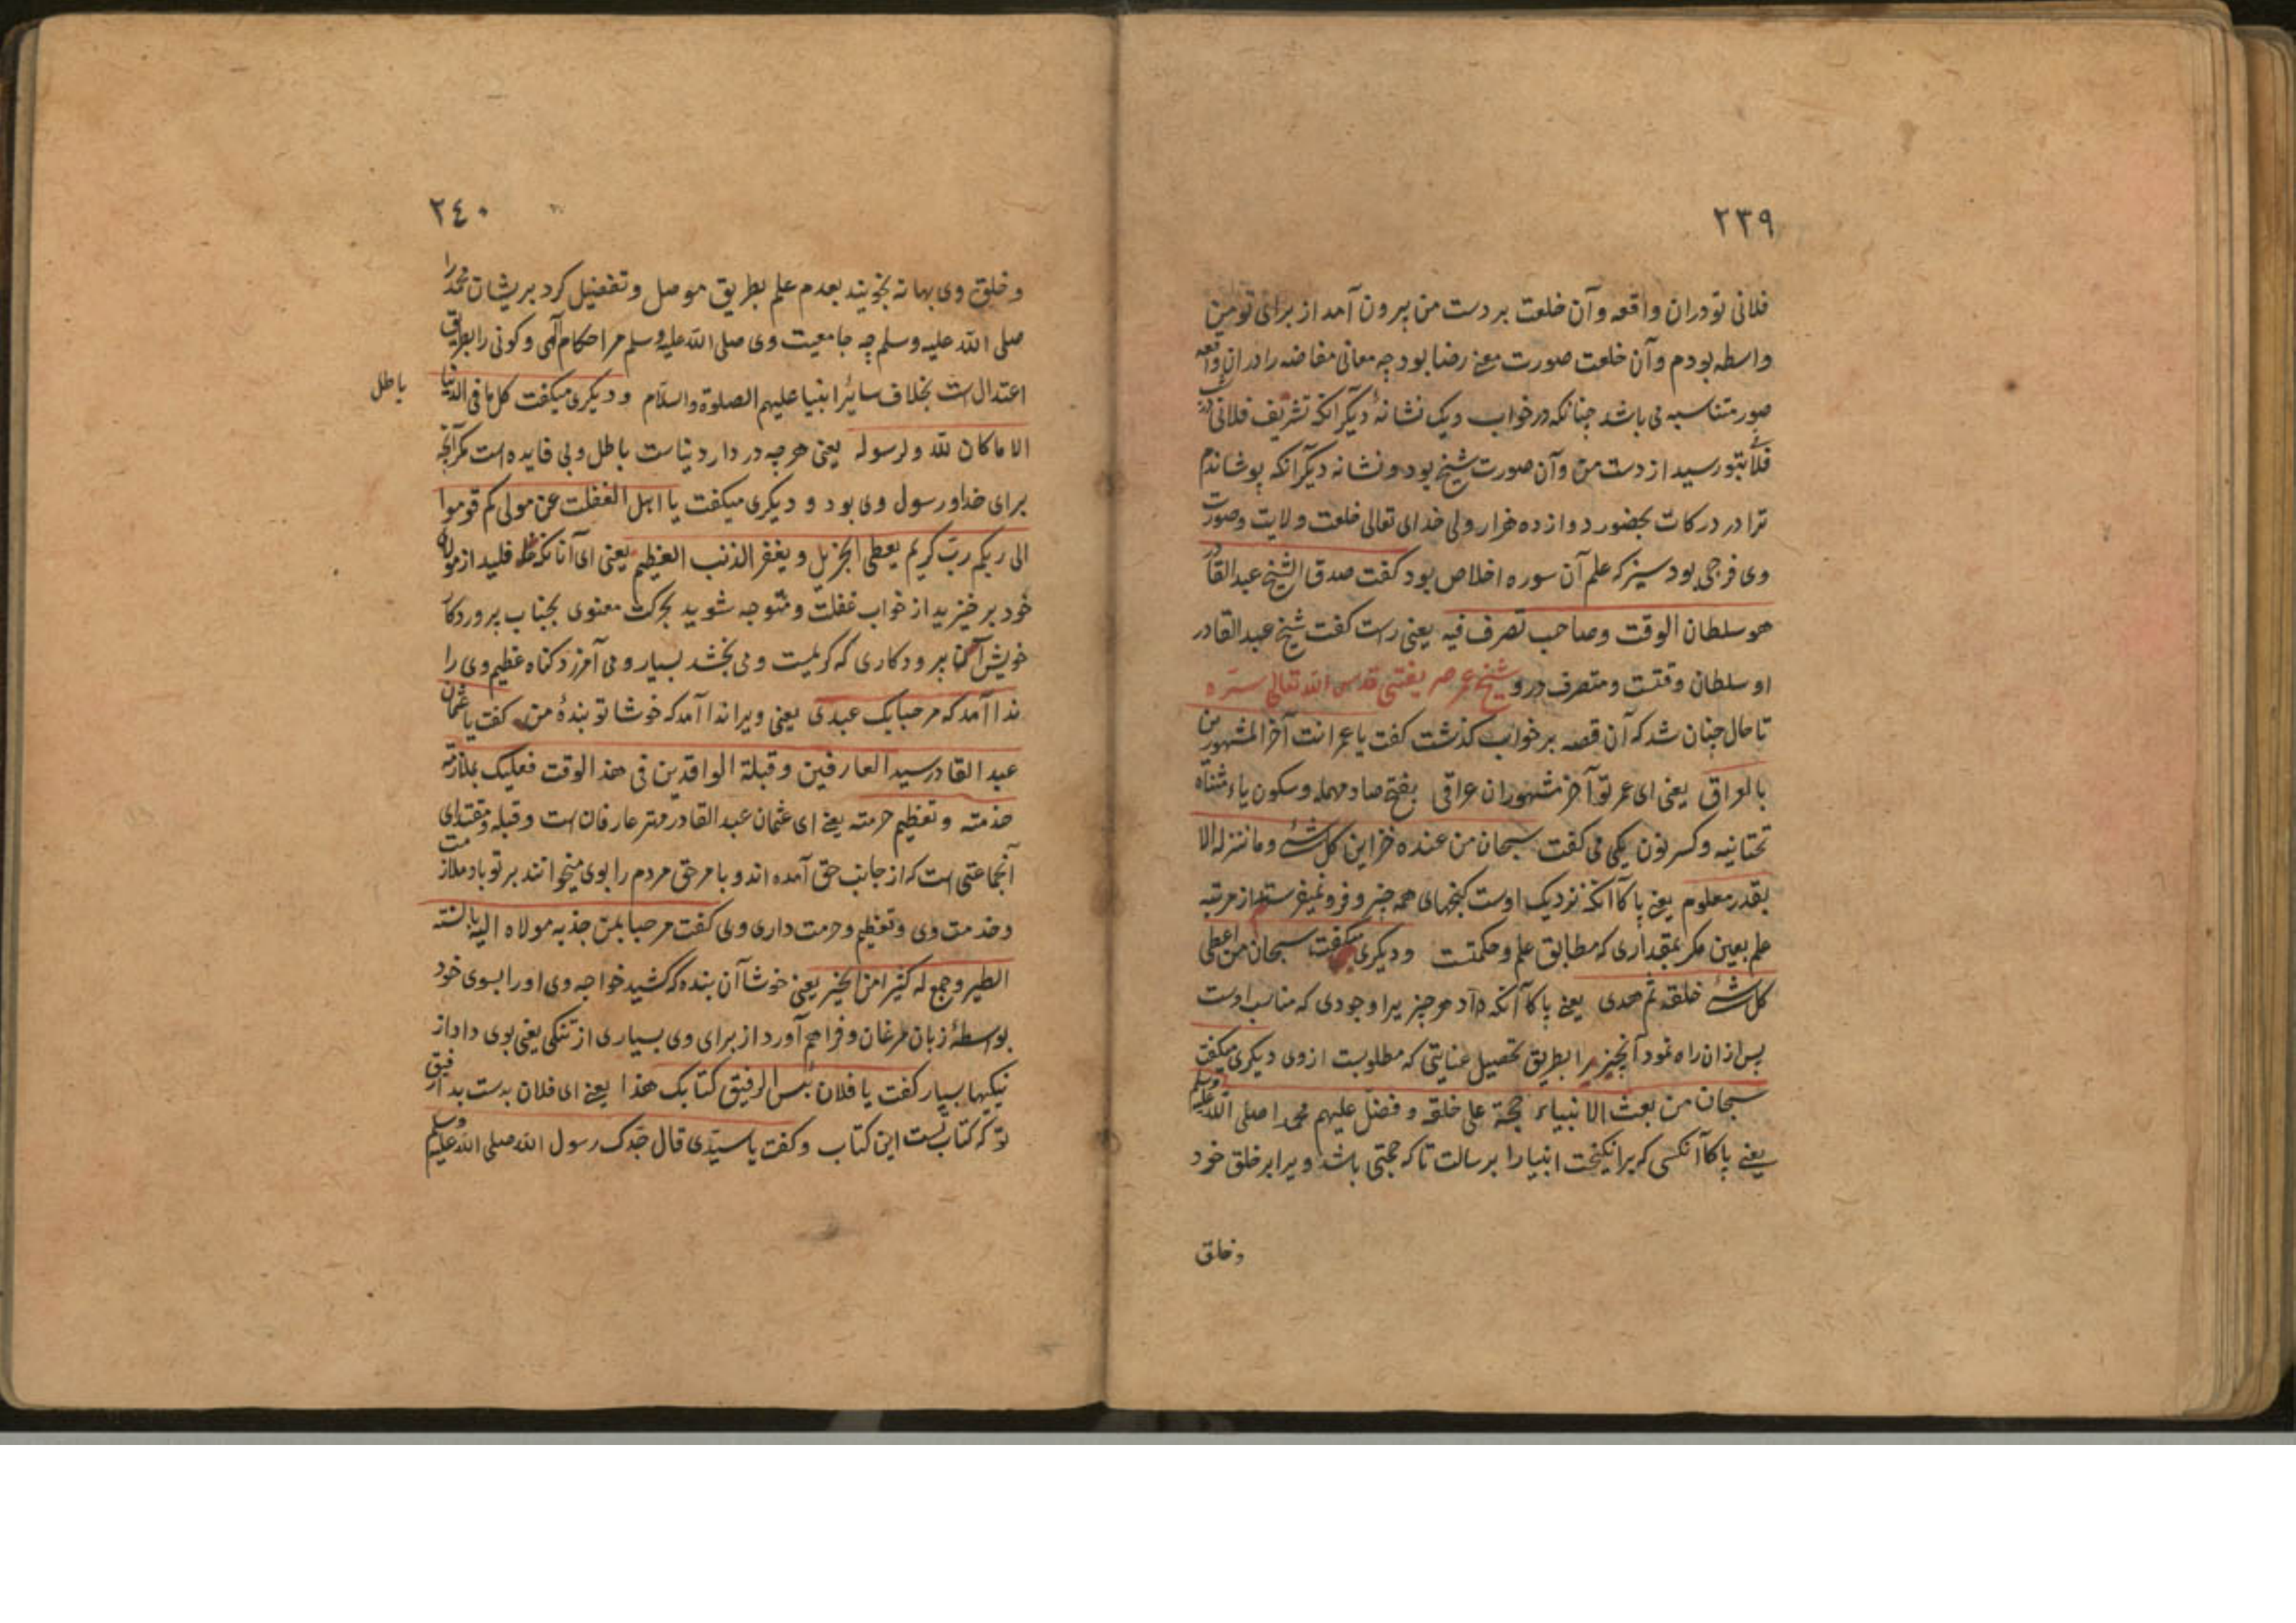 ۲۳۹
فلانی تو دران واقعه وآن خلعت بر دست من بیرون آمد از برای تو من
واسطه بودم وآن خلعت صورت معنی رضا بود چه معانی مفاضه را دران واقعه
صور متناسبه می باشد چنانکه در خواب ویک نشانهٔ دیگر انکه تشریف فلانی در شب
فلانی بتو رسید از دست من وآن صورت شیخ بود و نشانه دیگر انکه پوشاندم
ترا در درکات بحضور دوازده هزار ولی خدای تعالی خلعت ولایت وصورت
وی فرجی بود سبز که علم آن سوره اخلاص بود گفت صدق الشیخ عبد القادر
هو سلطان الوقت وصاحب تصرف فیه یعنی راست گفت شیخ عبد القادر
او سلطان وقتست ومتصرف درو شیخ عمر صریفنی قدس الله تعالی سره
تا حال چنان شد که آن قصه بر خواب گذشت گفت یا عمر انت آخر المشهورین
بالعراق یعنی ای عمر تو آخر مشهوران عراقی بفتح صاد مهمله وسکون یاء مثناة
تحتانیه وکسر نون یکی می گفت سبحان من عنده خزاین کل شئ وما ننزله الا
بقدر معلوم یعنی پاکا آنکه نزدیک اوست گنجهای همه چیز وفرو نمیفرستد از مرتبه
علم بعین مگر بمقداری که مطابق علم وحکمتست ودیگری میگفت سبحان من اعطی
کل شئ خلقه ثم هدی یعنی پاکا آنکه داد هر چیز یرا وجودی که مناسب اوست
پس ازان راه نمود آنچیز را بطریق تحصیل عنایتی که مطلوبست ازوی دیگری میگفت
سبحان من بعث الانبیاء حجة علی خلقه و فضل علیهم محمدا صلی الله علیه وسلم
یعنی پاکا آنکسی که برانگیخت انبیا را برسالت تا که حجتی باشد ویرا بر خلق خود
وخلق
۲٤۰
وخلق وی بهانه نجویند بعدم علم بطریق موصل وتفضیل کرد بریشان محمد را
صلی الله علیه وسلم چه جامعیت وی صلی الله علیه وسلم مر احکام آلهی وکونی را بطریق
اعتدالست بخلاف سایر انبیا علیهم الصلوة والسلام ودیگری میگفت کل ما فی الدنیا
باطل
الا ما کان لله ولرسوله یعنی هر چه در دار دنیاست باطل وبی فایده است مگر آنچه
برای خدا ورسول وی بود و دیگری میگفت یا اهل الغفلت عن مولی کم قوموا
الی ربکم رب کریم یعطی الجزیل ویغفر الذنب العظیم یعنی ای آنانکه غافلید از مولای
خود برخیزید از خواب غفلت ومتوجه شوید بحرکت معنوی بجناب پروردگار
خویش آنچنان پرودکاری که کریمست ومی بخشد بسیار ومی آمرزد گناه عظیم وی را
ندا آمد که مرحبا بک عبدی یعنی ویرا ندا آمد که خوشا تو بندهٔ من گفت یا عثمان
عبد القادر سید العارفین وقبلة الوافدین فی هذ الوقت فعلیک بملازمة
خدمته وتعظیم حرمته یعنی ای عثمان عبد القادر مهتر عارفان است وقبله ومقتدای
آنجماعتی است که از جانب حق آمده اند وبامر حق مردم را بوی میخوانند بر تو باد ملازمت
وخدمت وی وتعظیم وحرمت داری وی گفت مرحبا بمن جذبه مولاه الیه بالسنته
الطیر وجمع له کثیرا من الخیر یعنی خوشا آن بنده که کشید خواجه وی او را بسوی خود
بواسطهٔ زبان مرغان وفراهم آورد از برای وی بسیاری از نیکی یعنی بوی داد از
نیکیها بسیار گفت یا فلان بئس الرفیق کتابک هذا یعنی ای فلان بدست بد از رفیق
تو که کتاب تست این کتاب وگفت یا سیدی قال جدک رسول الله صلی الله علیه وسلم